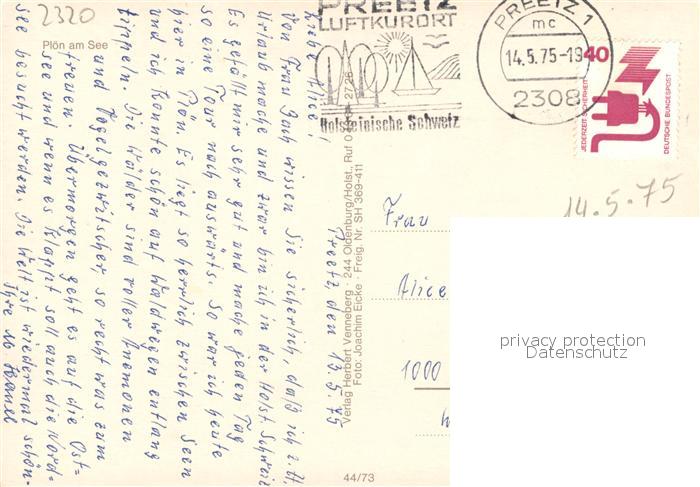 2320
Plön am See
PREETZ
LUFTKURORT
Holsteinische Schweiz
PREETZ 1
mc
14.5.75-19
2308
40
JEDERZEIT SICHERHEIT
DEUTSCHE BUNDESPOST
14.5.75
Preetz den 13.5.75
Liebe Alice!
Von Frau Gach wissen Sie sicherlich, daß ich z. Zt.
Urlaub mache und zwar bin ich in der Holst. Schweiz
Es gefällt mir sehr gut und mache jeden Tag
so eine Tour nach auswärts. So war ich heute
hier in Plön. Es liegt so herrlich zwischen Seen
und ich konnte schön auf Waldwegen entlang
tippeln. Die Wälder sind voller Anemonen
und Vogelgezwitscher, so recht was zum
freuen. Übermorgen geht es auf die Ost=
see und wenn es klappt soll auch die Nord=
see besucht werden. Die Welt ist wiedermal schön.
Ihre
Verlag Herbert Venneberg · 244 Oldenburg/Holst., Ruf
Foto: Joachim Eicke · Freig. Nr. SH 369-411
44/73
Frau
Alice
1000
privacy protection
Datenschutz